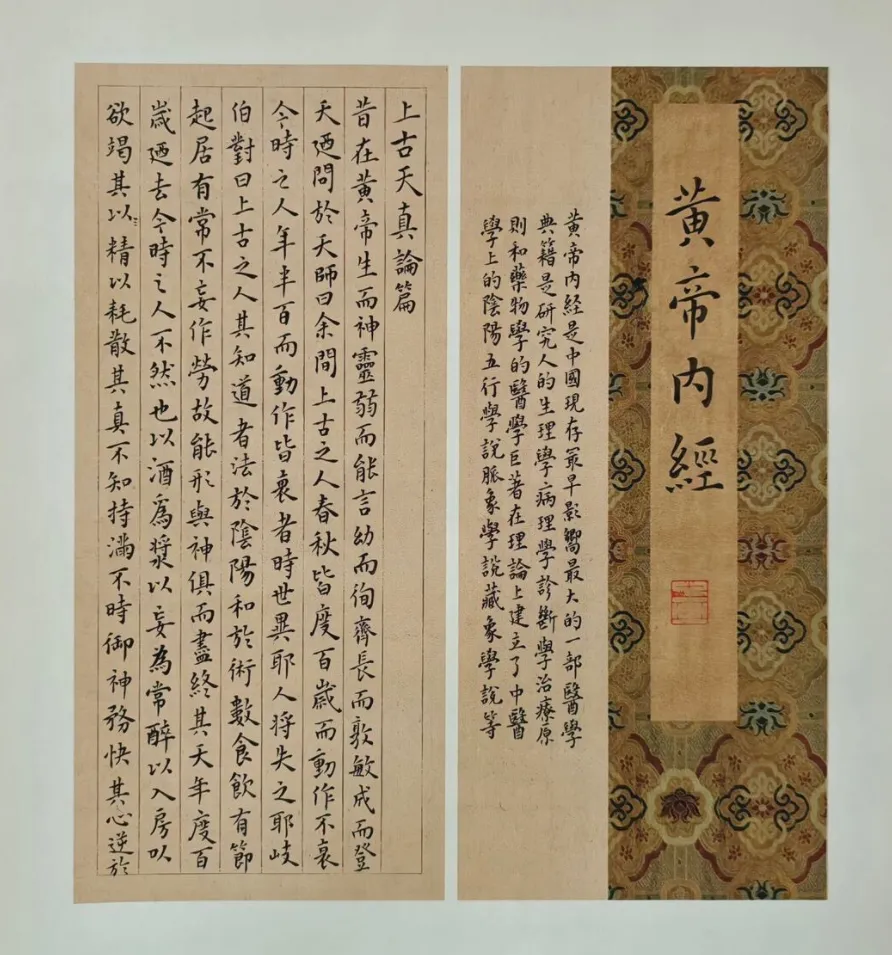 黃帝内經
黃帝内経是中國現存最早影響最大的一部醫學
典籍是研究人的生理學病理學診斷學治療原
則和藥物學的醫學巨著在理論上建立了中醫
學上的陰陽五行學說脈象學說藏象學說等
上古天真論篇
昔在黃帝生而神靈弱而能言幼而徇齊長而敦敏成而登
天迺問於天師曰余間上古之人春秋皆度百歲而動作不衰
今時之人年半百而動作皆衰者時世異耶人將失之耶岐
伯對曰上古之人其知道者法於陰陽和於術數食飲有節
起居有常不妄作勞故能形與神俱而盡終其天年度百
歲迺去今時之人不然也以酒爲漿以妄為常醉以入房以
欲竭其以精以耗散其真不知持滿不時御神務快其心逆於